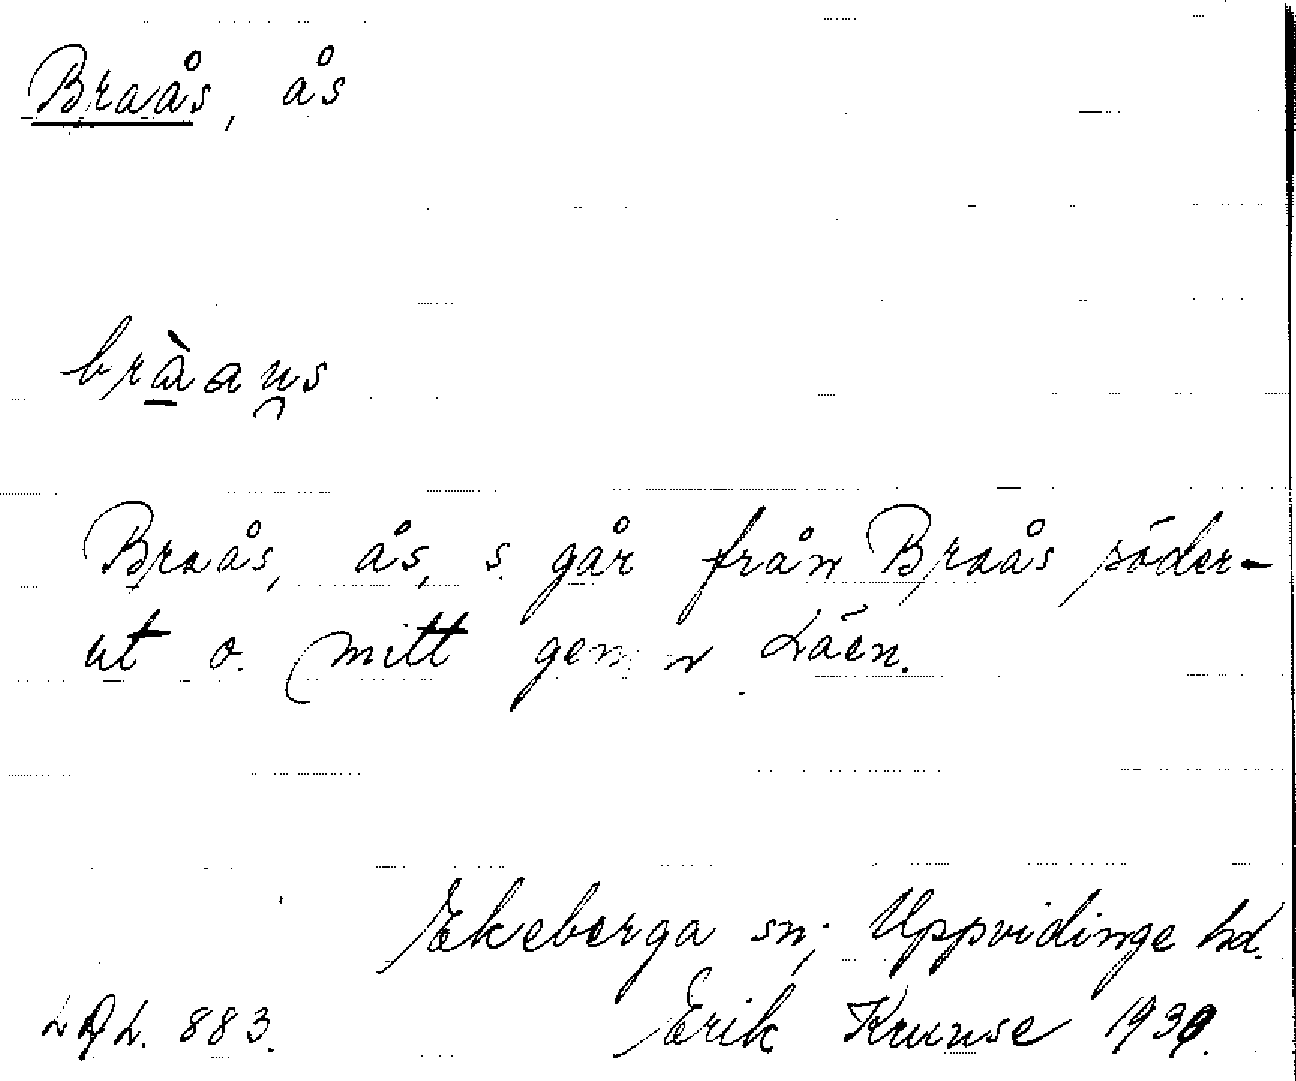 Braås, ås
bràaus
Braås, ås, s. går från Braås söder-
ut o. mitt genom Låen.
Ekeberga sn; Uppvidinge hd.
883. Erik Kruuse 1939.